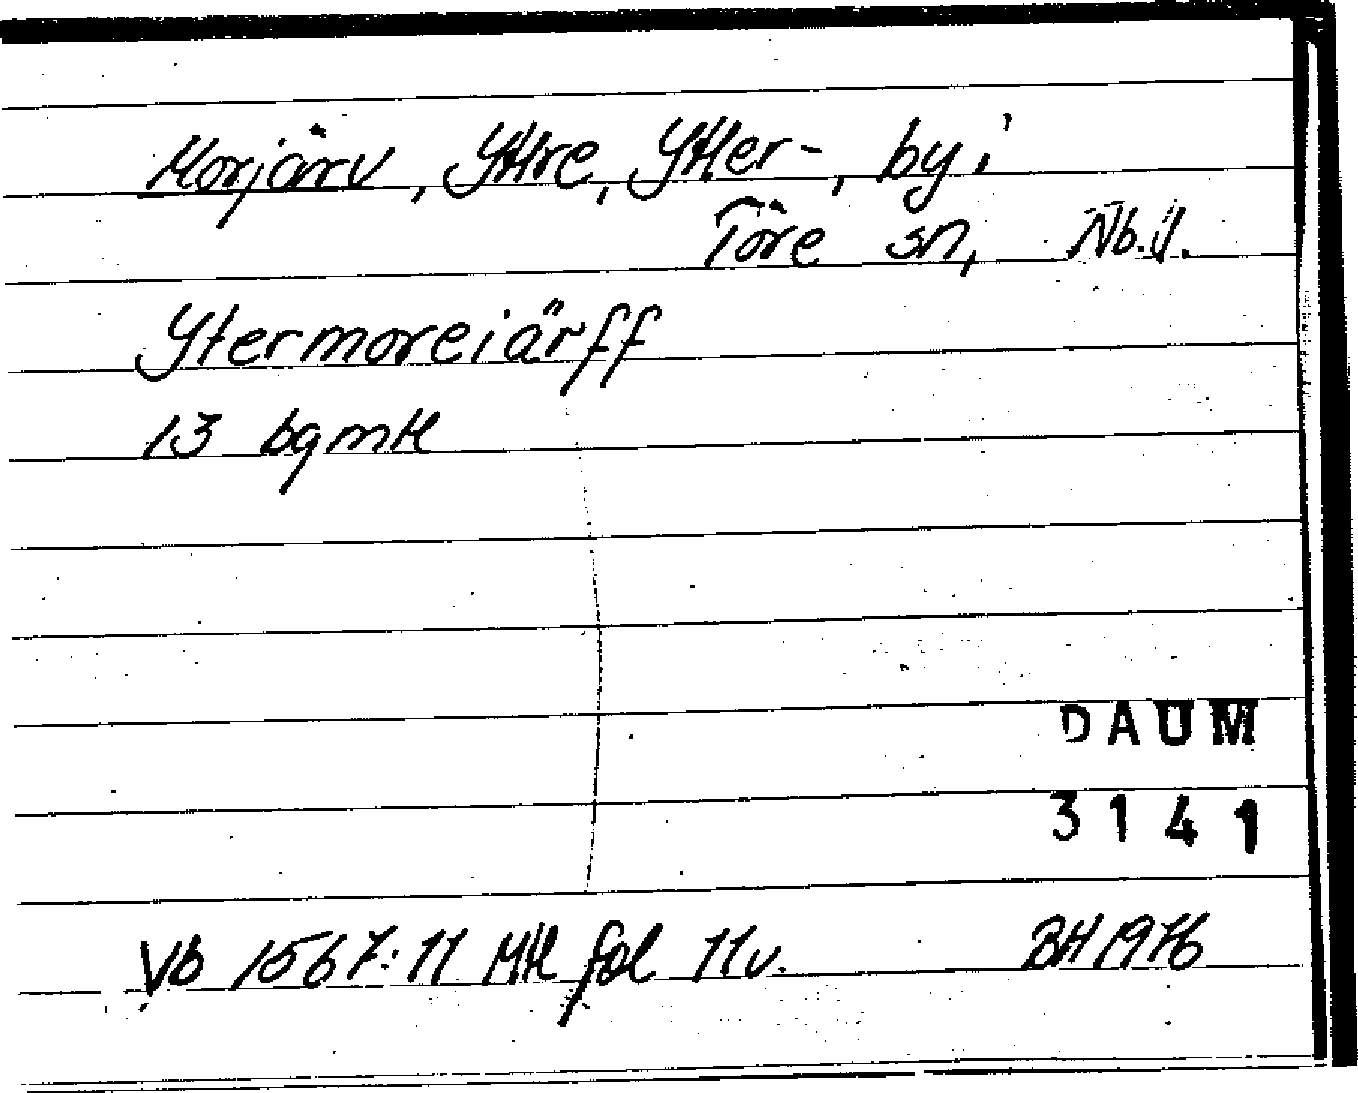 Morjärv, Yttre, Ytter-, by i
Töre sn, Nb.l.
Ytermoreiärff
13 bqmtl
DAUM
3141
Vb 1567:11 Mtl fol 11v. BH 1976